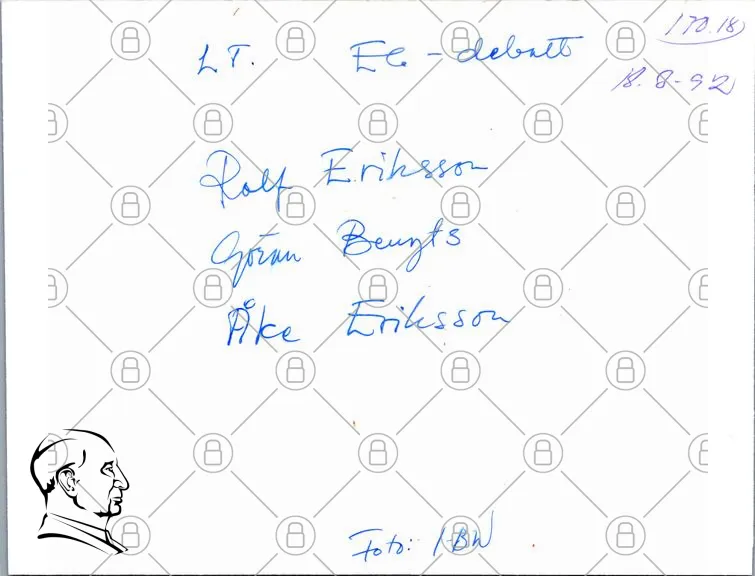 170.18
LT. EG-debatt
18.8-92
Rolf Eriksson
Göran Bengts
Åke Eriksson
Foto: IBW